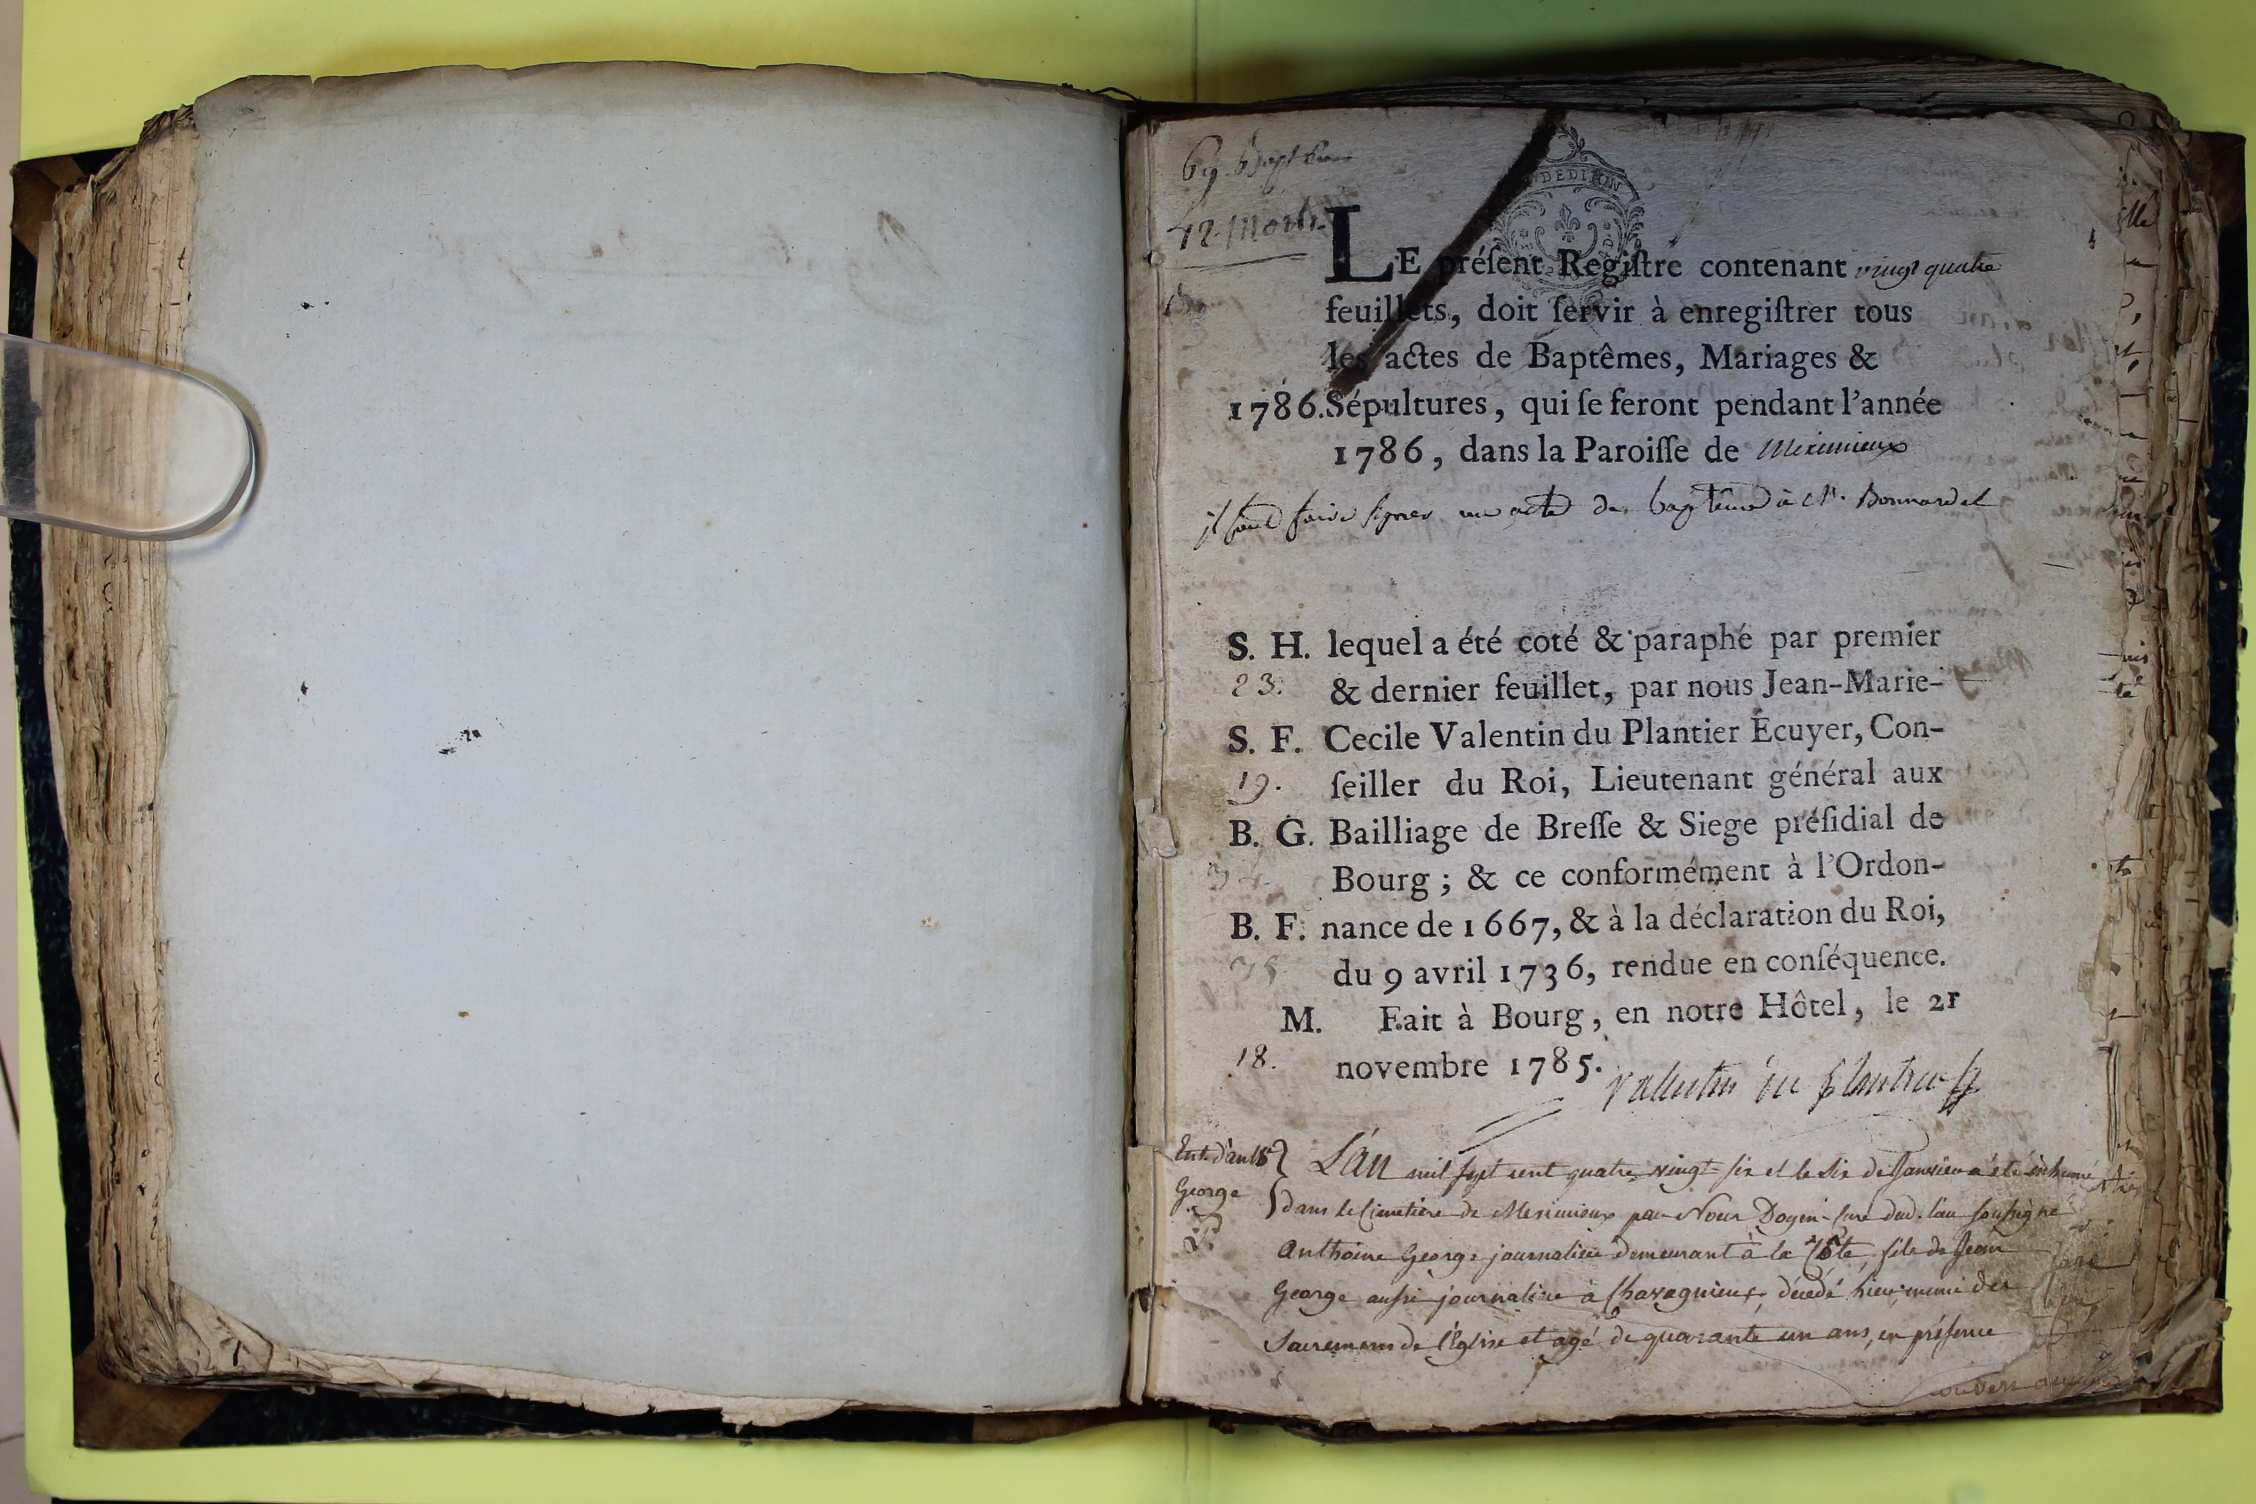 69. Baptêmes
42. Morts.
DE DIJON
LE préſent Regiſtre contenant vingt quatre
feuillets, doit ſervir à enregiſtrer tous
les actes de Baptêmes, Mariages &
1786. Sépultures, qui ſe feront pendant l'année
1786, dans la Paroiſſe de Meximieux
il faut faire signer un acte de baptême à Mr. Bonnardel
S. H. lequel a été coté & paraphé par premier
23. & dernier feuillet, par nous Jean-Marie-
S. F. Cecile Valentin du Plantier Ecuyer, Con-
19. ſeiller du Roi, Lieutenant général aux
B. G. Bailliage de Breſſe & Siege préſidial de
34. Bourg ; & ce conformément à l'Ordon-
B. F. nance de 1667, & à la déclaration du Roi,
35. du 9 avril 1736, rendue en conſéquence.
M. Fait à Bourg, en notre Hôtel, le 21
18. novembre 1785.
Valentin du Plantier
L'an mil sept cent quatre vingt six et le six de Janvier a été inhumé
George
dans le Cimetière de Meximieux par Nous Doyen Curé dud. lieu soussigné
Anthoine George journalier demeurant à la Côte, fils de Jean
George aussi journalier à Charagnieux, décédé hier, muni des
Sacremens de l'Eglise et agé de quarante un ans, en présence